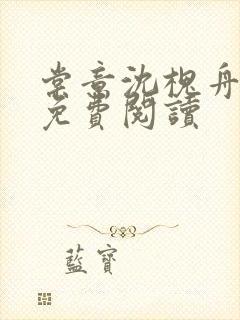 棠音沈槐舟
免費閱讀
藍寶